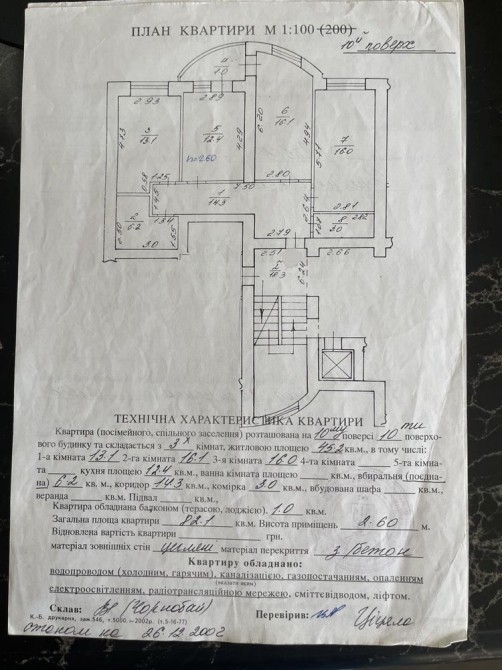 ПЛАН КВАРТИРИ М 1:100 (200)
10й поверх
4
1.0
2.93
2.89
3
13.1
4.13
5
12.4
4.29
h=2.60
6.20
6
16.1
4.94
5.71
7
16.0
0.58
1.25
7.50
2.80
1
14.3
1.45
1.34
2
6.2
2.50
1.55
3.0
2.64
2.81
8
3.0
2.82
1.67
2.79
2.51
I
18.3
6.24
2.66
ТЕХНІЧНА ХАРАКТЕРИСТИКА КВАРТИРИ
Квартира (посімейного, спільного заселення) розташована на 10му поверсі 10ти поверхо-
вого будинку та складається з 3х кімнат, житловою площею 45.2 кв.м., в тому числі:
1-а кімната 13.1 2-га кімната 16.1 3-я кімната 16.0 4-та кімната 5-та кімна-
та кухня площею 12.4 кв.м., ванна кімната площею кв.м., вбиральня (поєдна-
на) 6.2 кв. м., коридор 14.3 кв.м., комірка 3.0 кв.м., вбудована шафа кв.м.,
веранда кв.м. Підвал кв.м.,
Квартира обладнана балконом (терасою, лоджією) 1.0 кв.м.
Загальна площа квартири 82.1 кв.м. Висота приміщень 2.60 м.
Відновлена вартість квартири грн.
матеріал зовнішніх стін цегляні матеріал перекриття з/бетон
Квартиру обладнано:
водопроводом (холодним, гарячим), каналізацією, газопостачанням, опаленням
електроосвітленням, радіотрансляційною мережею, сміттєвідводом, ліфтом.
Склав: (Чорнобай) Перевірив:
К.-Б. друкарня, зам.546, т.5000.—2002р. (т.5-16-77)
станом на 26.12.2002